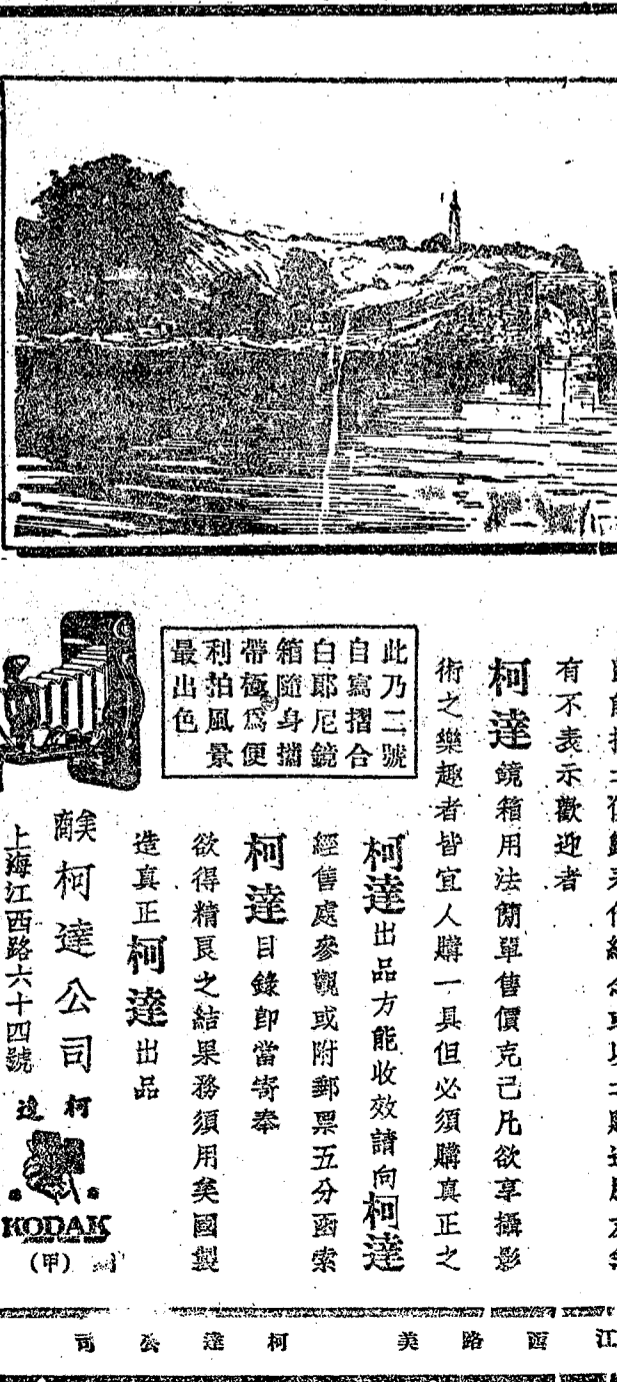 有不表示歡迎者
柯達鏡箱用法簡單售價克己凡欲享攝影
術之樂趣者皆宜人購一具但必須購真正之
柯達出品方能收效請向柯達
經售處參觀或附郵票五分函索
柯達目錄卽當寄奉
欲得精良之結果務須用美國製
造真正柯達出品
此乃二號
自寫摺合
白郎尼鏡
箱隨身攜
帶極爲便
利拍風景
最出色
美商
柯達公司
上海江西路六十四號
柯達
KODAK
(甲)
江西路美
柯達公司